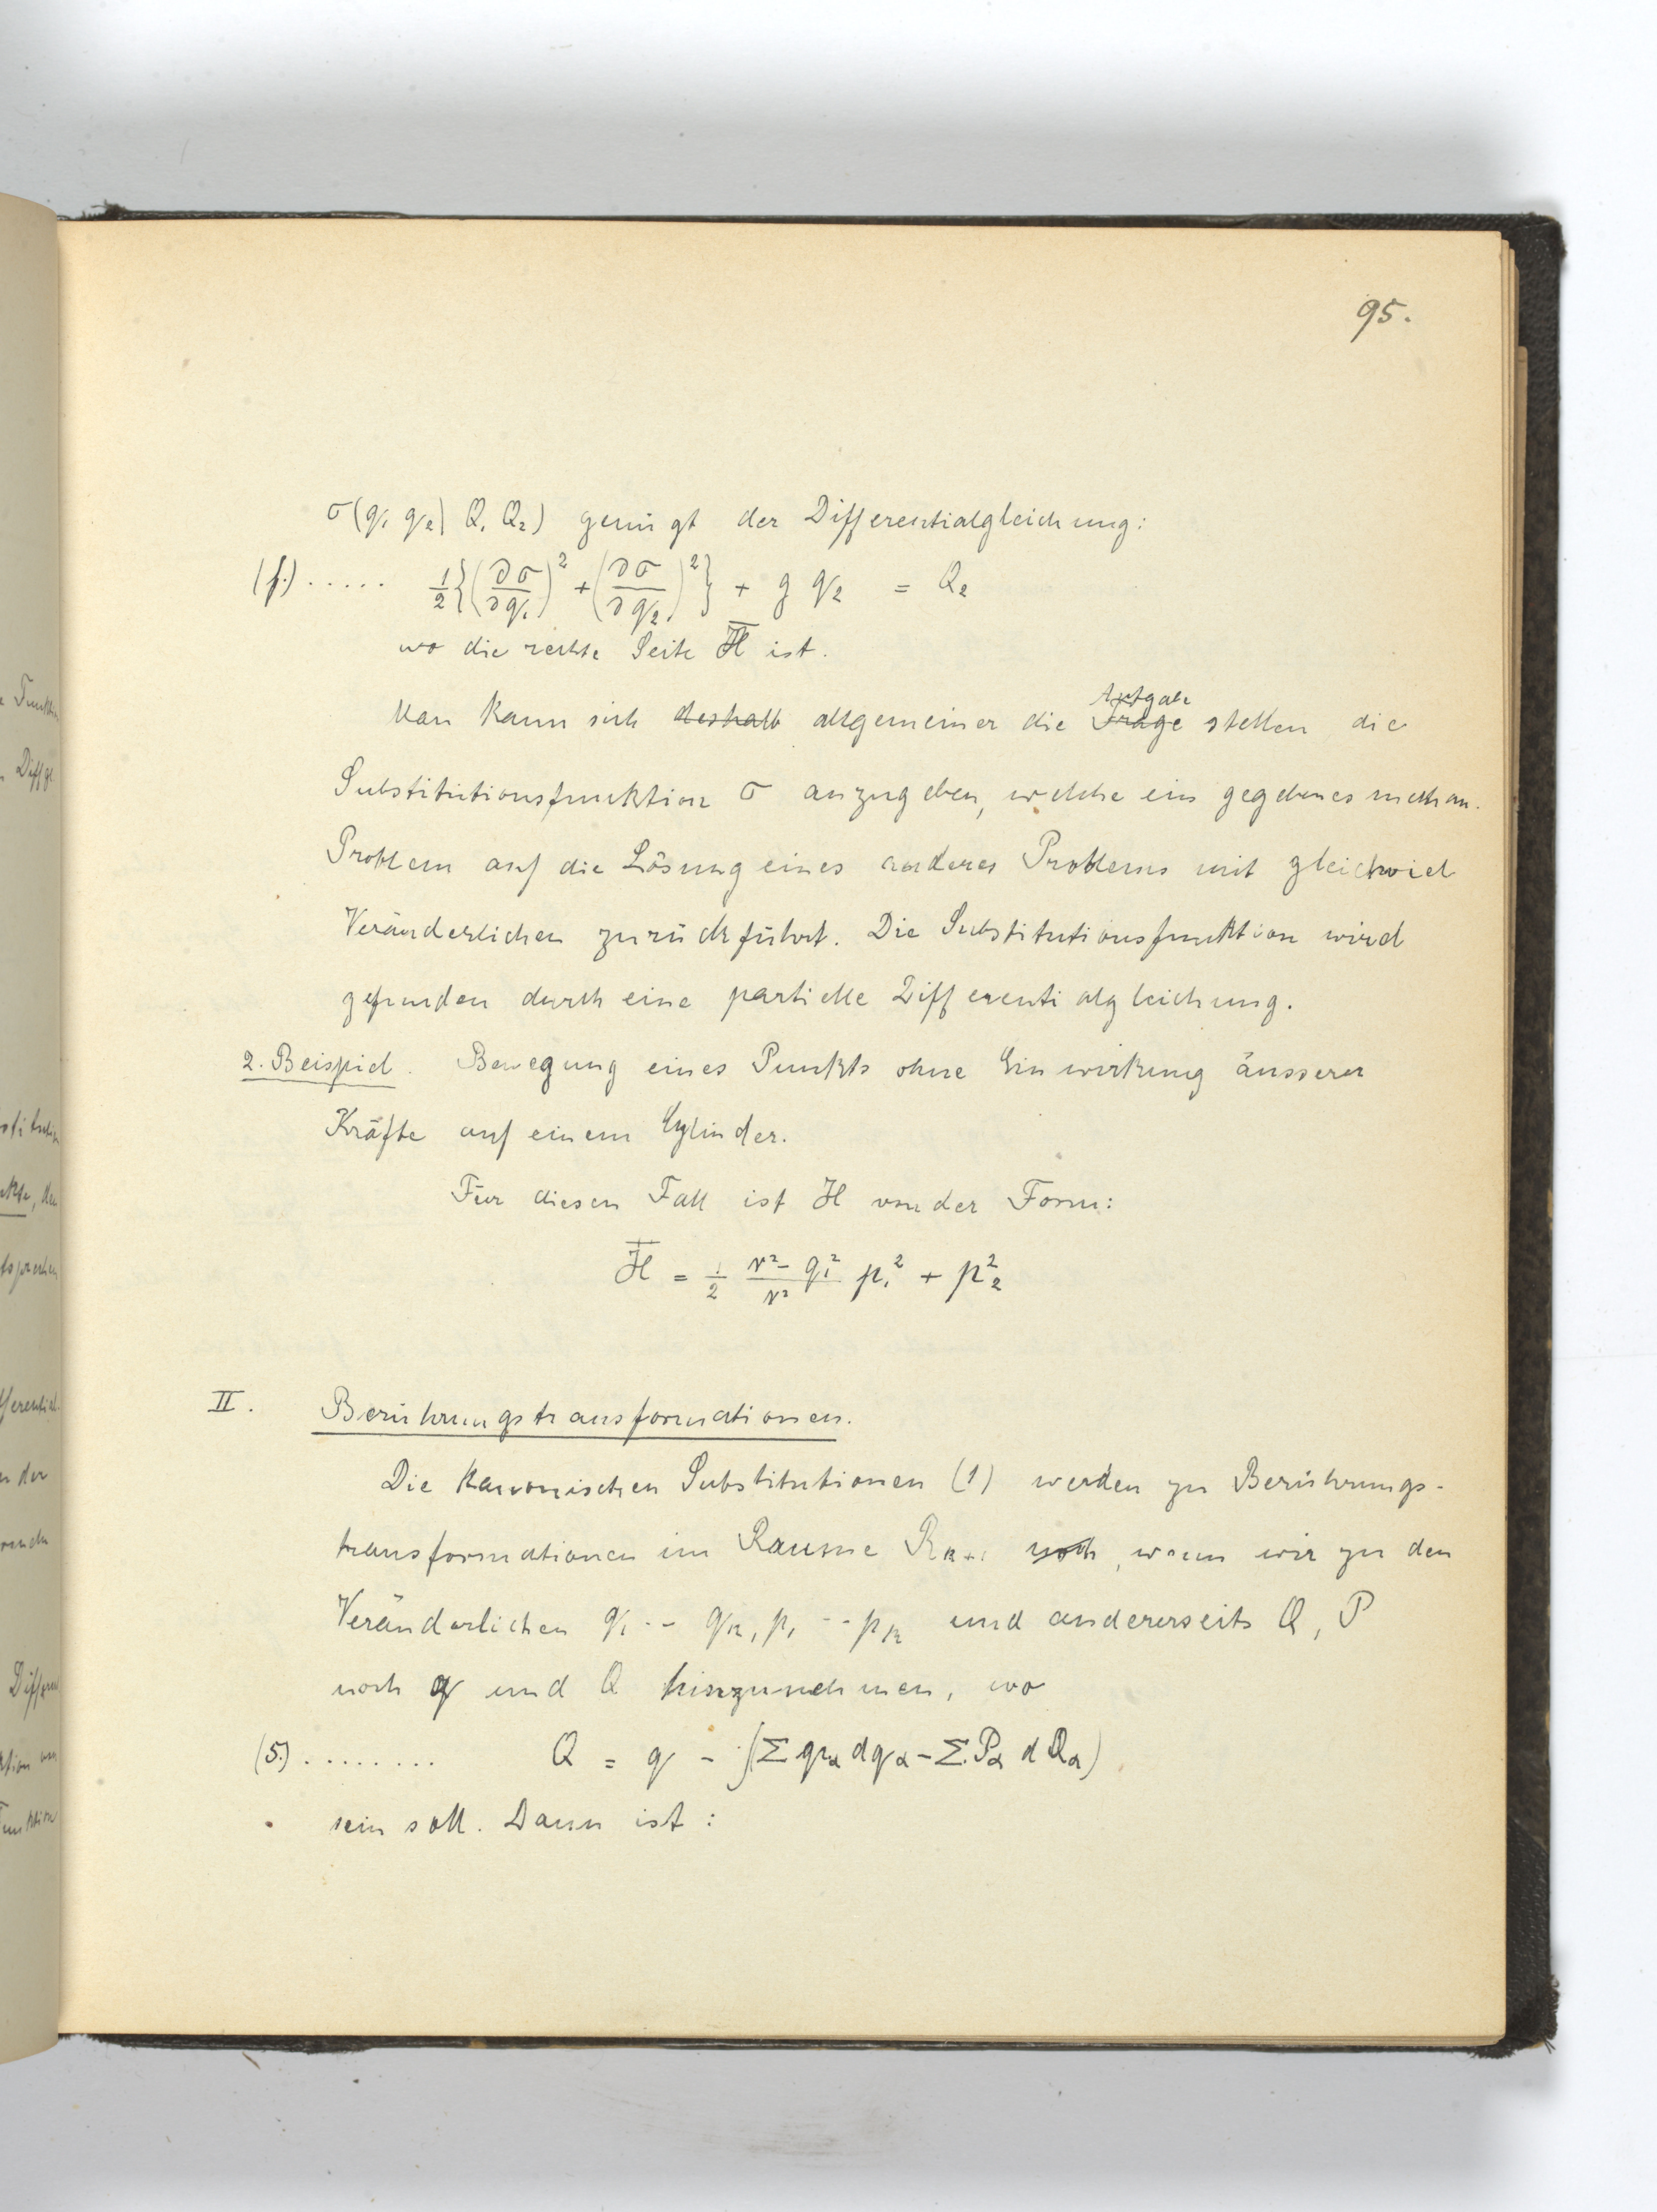 95.
σ(q₁ q₂| Q₁ Q₂) genügt der Differentialgleichung:
(f.) ..... ½{(∂σ/∂q₁)² + (∂σ/∂q₂)²} + g q₂ = Q₂
wo die rechte Seite H̅ ist.
Man kann sich deshalb allgemeiner die Frage Aufgabe stellen die
Substitutionsfunktion σ anzugeben, welche ein gegebenes mechan.
Problem auf die Lösung eines anderes Problems mit gleichviel
Veränderlichen zurückführt. Die Substitutionsfunktion wird
gefunden durch eine partielle Differentialgleichung.
2. Beispiel. Bewegung eines Punkts ohne Einwirkung äusserer
Kräfte auf einem Cylinder.
Für diesen Fall ist H von der Form:
H̅ = ½ (r² - q₁²)/r² p₁² + p₂²
II. Berührungstransformationen.
Die kanonischen Substitutionen (1) werden zu Berührungs-
transformationen im Raume Rₖ₊₁ noch, wenn wir zu den
Veränderlichen q₁ -- qₖ, p₁ -- pₖ und andererseits Q, P
noch q und Q hinzunehmen, wo
(5.) ........ Q = q - ∫(Σ pα dqα - Σ Pα dQα)
sein soll. Dann ist :